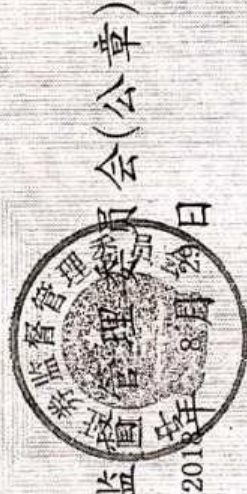 监督管理委员会(公章)
2018年8月29日
中国证券监督管理委员会